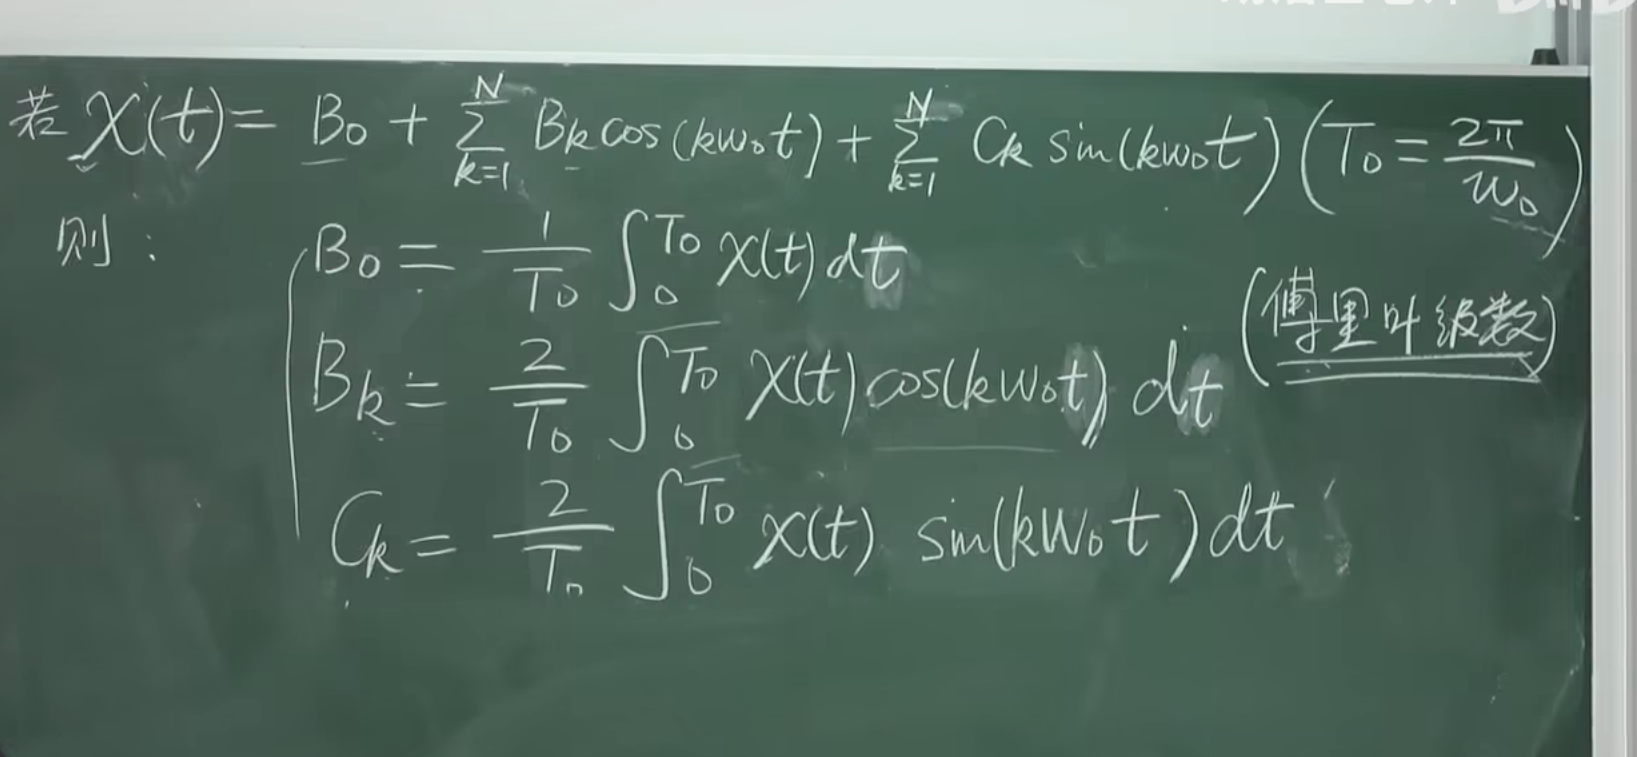 若 X(t) = B₀ + ∑_{k=1}^{N} B_k cos(kw₀t) + ∑_{k=1}^{N} C_k sin(kw₀t) (T₀ = 2π/w₀)
则: B₀ = 1/T₀ ∫₀^{T₀} X(t)dt
(傅里叶级数)
B_k = 2/T₀ ∫₀^{T₀} X(t)cos(kw₀t) dt
C_k = 2/T₀ ∫₀^{T₀} X(t) sin(kw₀t)dt